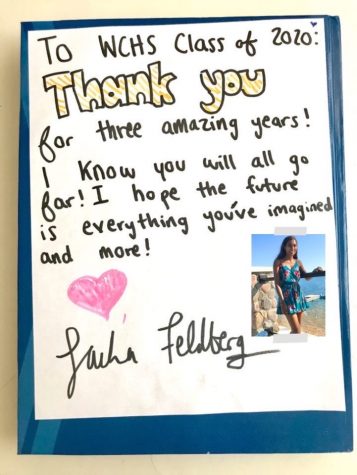 To WCHS Class of 2020:
Thank you
for three amazing years!
I know you will all go
far! I hope the future
is everything you've imagined
and more!
Sasha Feldberg